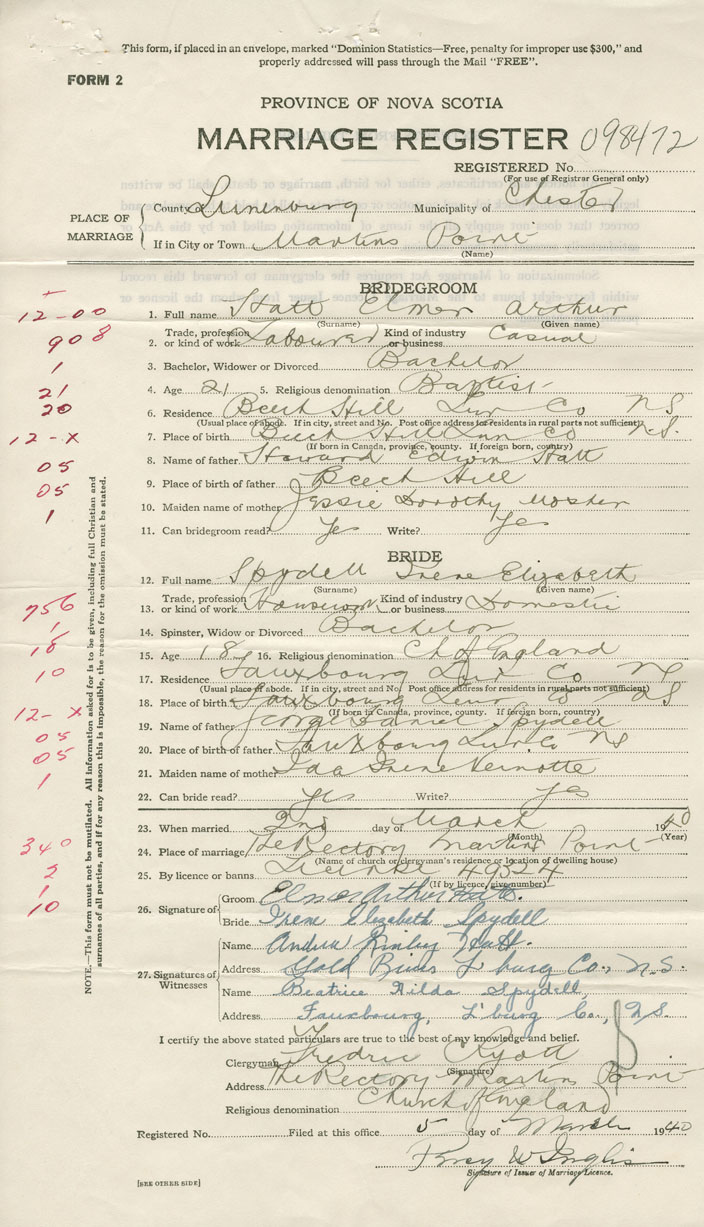 This form, if placed in an envelope, marked "Dominion Statistics—Free, penalty for improper use $300," and
properly addressed will pass through the Mail "FREE".
FORM 2
PROVINCE OF NOVA SCOTIA
MARRIAGE REGISTER 098472
REGISTERED No.
(For use of Registrar General only)
PLACE OF MARRIAGE
County of Lunenburg Municipality of Chester
If in City or Town Martins Point
(Name)
BRIDEGROOM
12-00 1. Full name Hatt Elmer Arthur
(Surname) (Given name)
908 2. Trade, profession or kind of work Labourer Kind of industry or business Casual
1 3. Bachelor, Widower or Divorced Bachelor
21 4. Age 21 5. Religious denomination Baptist
20 6. Residence Beech Hill Lun Co NS
(Usual place of abode. If in city, street and No. Post office address for residents in rural parts not sufficient)
12-X 7. Place of birth Beech Hill Lun Co N.S.
(If born in Canada, province, county. If foreign born, country)
05 8. Name of father Edwin Hatt
05 9. Place of birth of father Beech Hill
1 10. Maiden name of mother Jessie Dorothy Mosher
11. Can bridegroom read? Yes Write? Yes
BRIDE
12. Full name Spydell Irene Elizabeth
(Surname) (Given name)
756 13. Trade, profession or kind of work Housework Kind of industry or business Domestic
1 14. Spinster, Widow or Divorced Bachelor
18 15. Age 18 16. Religious denomination Ch of England
10 17. Residence Fauxbourg Lun Co NS
(Usual place of abode. If in city, street and No. Post office address for residents in rural parts not sufficient)
12-X 18. Place of birth Fauxbourg Lun Co NS
(If born in Canada, province, county. If foreign born, country)
05 19. Name of father George Daniel Spydell
05 20. Place of birth of father Fauxbourg Lun. Co NS
1 21. Maiden name of mother Ida Irene
22. Can bride read? Yes Write? Yes
23. When married 2nd day of March 1940
(Month) (Year)
340 24. Place of marriage The Rectory Martins Point
(Name of church or clergyman's residence or location of dwelling house)
2 25. By licence or banns License 49524
(If by licence, give number)
1 26. Signature of Groom Elmer Arthur Hatt.
10 Bride Irene Elizabeth Spydell
27. Signatures of Witnesses
Name Hatt.
Address Gold River L'burg Co., N.S.
Name Beatrice Hilda Spydell,
Address Fauxbourg, L'burg Co., N.S.
I certify the above stated particulars are true to the best of my knowledge and belief.
Clergyman Fredric Ryott
(Signature)
Address The Rectory Martins Point
Religious denomination Church of England
Registered No. Filed at this office 5 day of March 1940
W Inglis
Signature of Issuer of Marriage Licence.
[SEE OTHER SIDE]
NOTE.—This form must not be mutilated. All information asked for is to be given, including full Christian and
surnames of all parties, and if for any reason this is impossible, the reason for the omission must be stated.